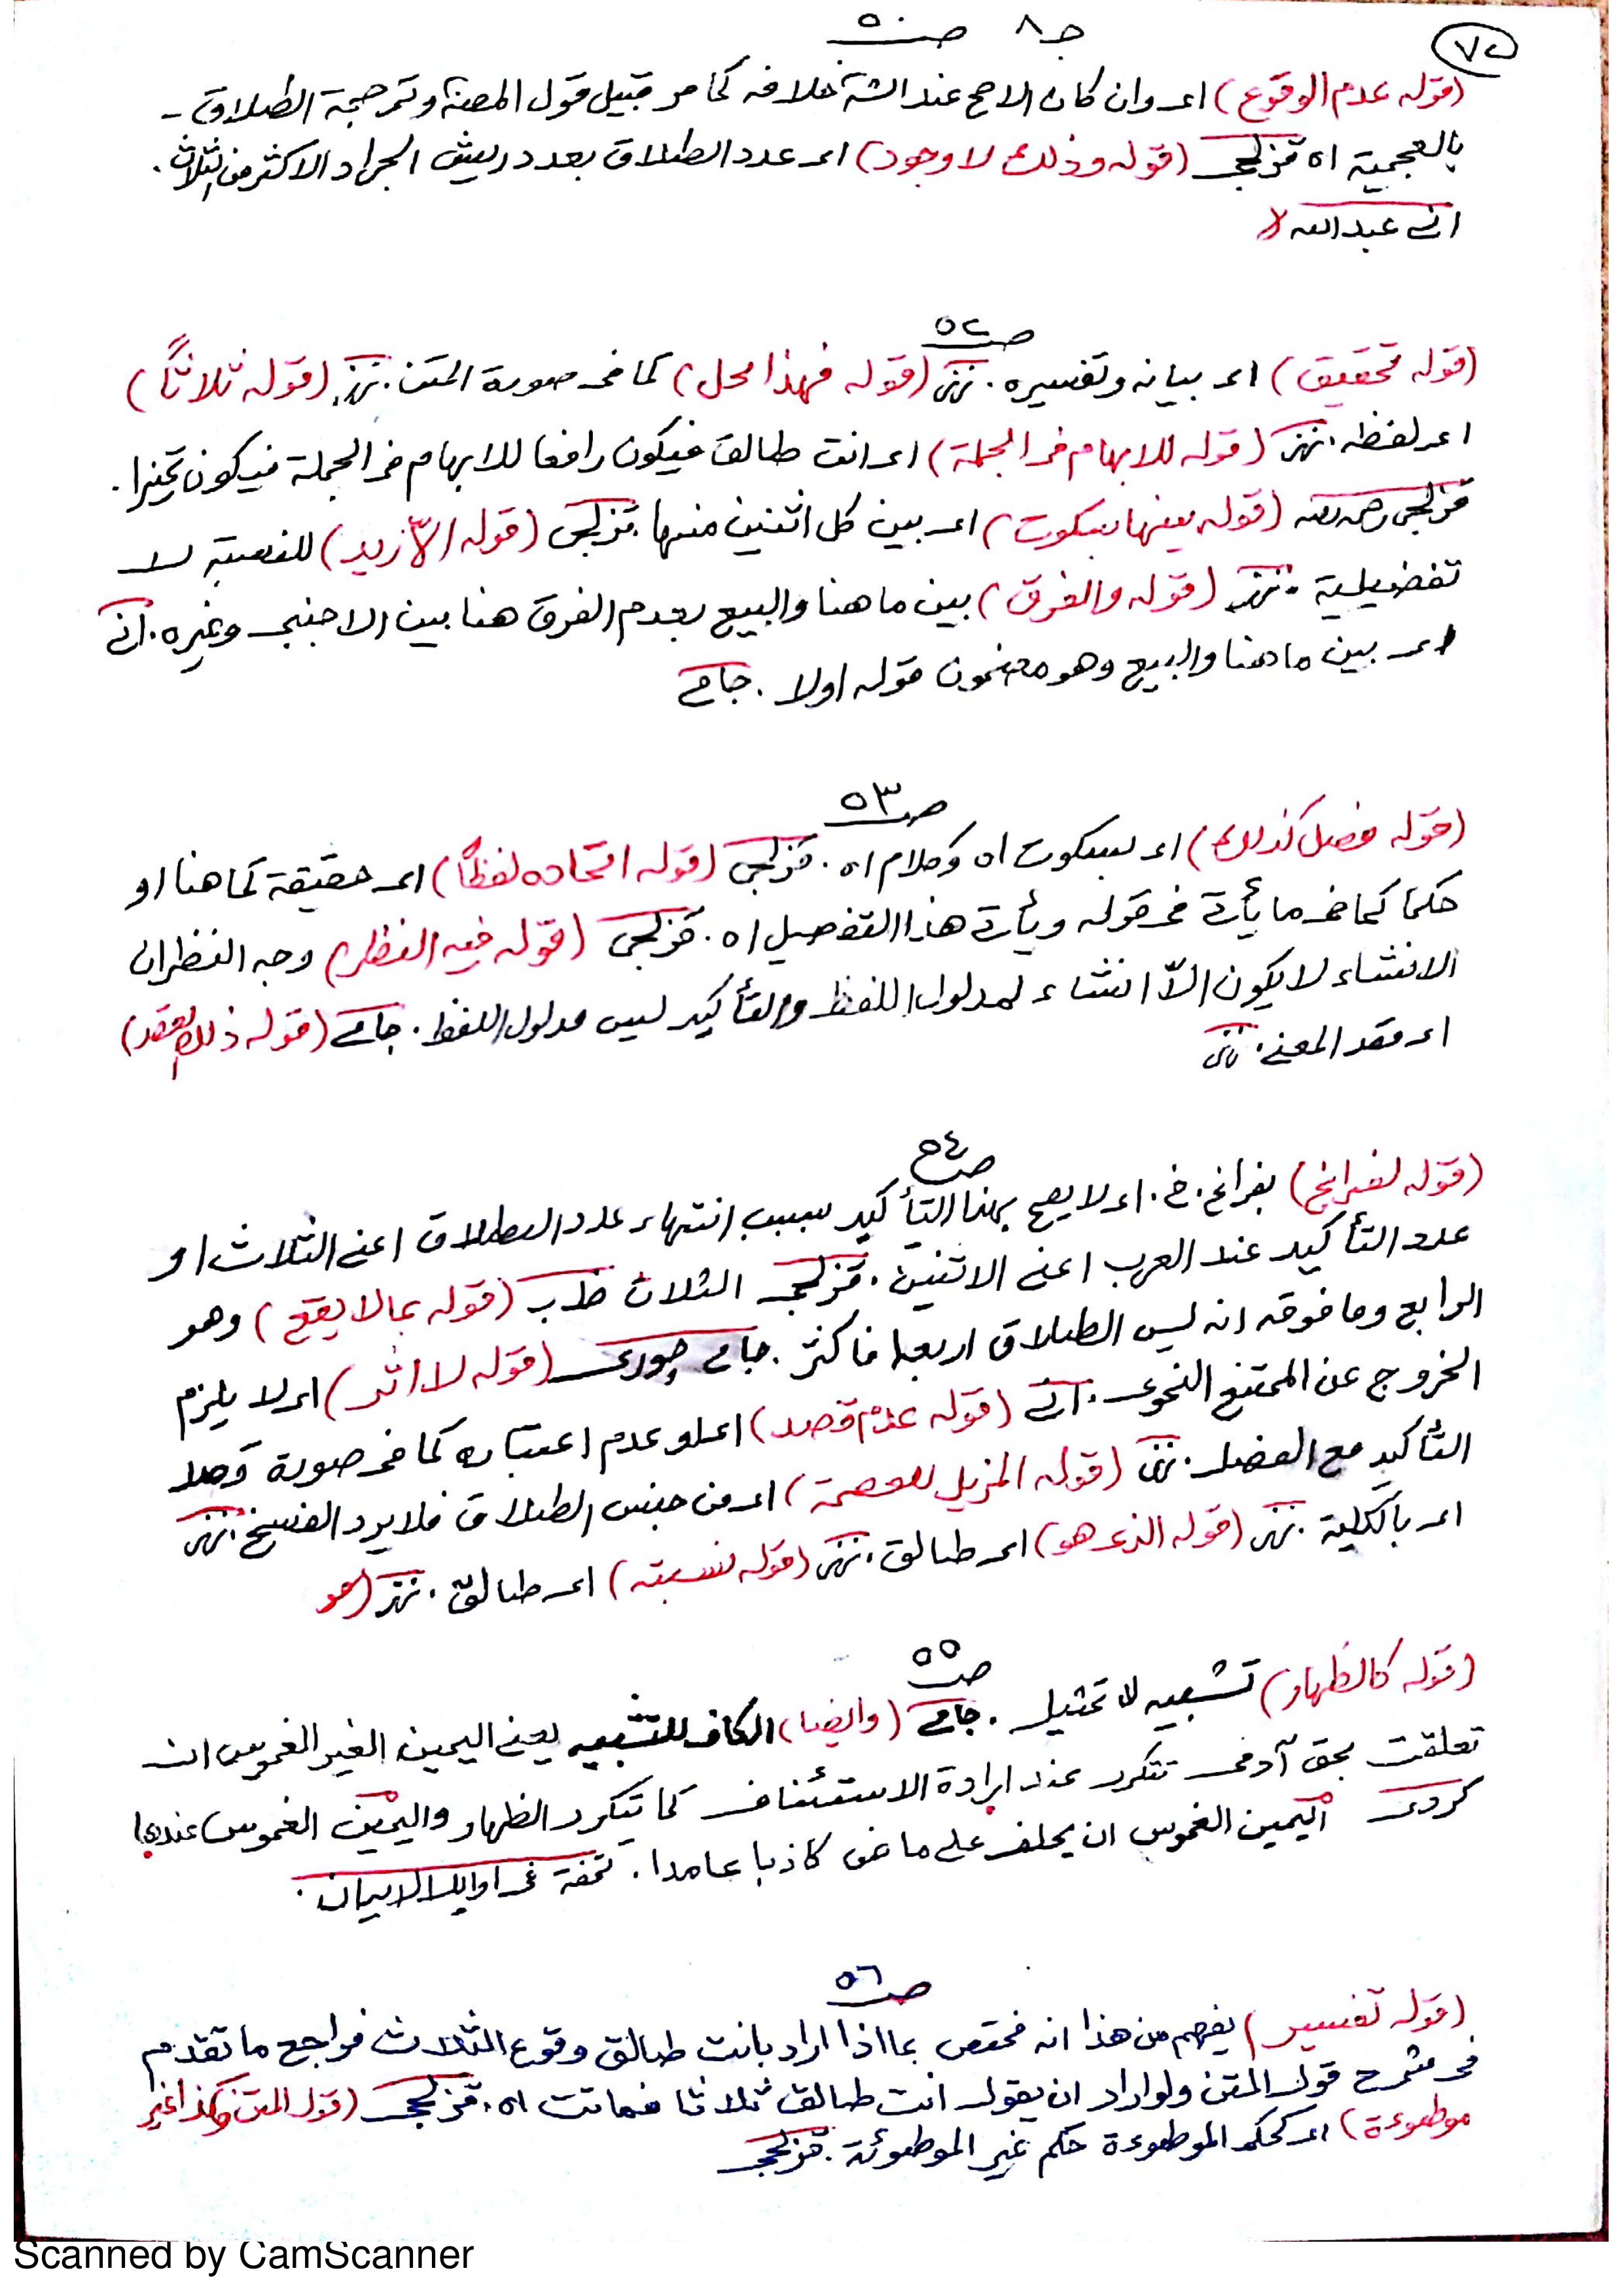 ٧٢
جـ ٨ صـ ٥٠
(قوله عدم الوقوع) اى وان كان الاصح عند الشـ خلافه كما مر قبيل قول المصنف وترجمة الطلاق
بالعجمية اه قزلجى (قوله وذلك لا وجود) اى عدد الطلاق بعدد ريش الجراد الاكثر من الثلاث.
عبدالله
صـ ٥٢
(قوله تحقيق) اى بيانه وتفسيره. (قوله فهذا محل) كما فى صورة المتن. (قوله ثلاثاً)
اى لفظه. (قوله للابهام فى الجملة) اى انت طالق فيكون رافعا للابهام فى الجملة فيكون تميزا.
قزلجى (قوله بينها سكوت) اى بين كل اثنين منها. قزلجى (قوله الأزيد) للنسبة لا
تفضيلية. (قوله والفرق) بين ما هنا والبيع بعدم الفرق هنا بين الاجنبى وغيره.
اى بين ما هنا والبيع وهو مضمون قوله اولا. جامى
صـ ٥٣
(قوله فصل كذلك) اى بسكوت اه وكلام اه. قزلجى (قوله اتحاده لفظاً) اى حقيقة كما هنا او
حكما كما فى ما يأتى فى قوله ويأتى هذا التفصيل اه. قزلجى (قوله فيه النظر) وجه النظر ان
الانشاء لا يكون الاّ انشاء لمدلول اللفظ والتأكيد ليس مدلول اللفظ. جامى (قوله ذلك القصد)
اى قصد المعنى.
صـ ٥٤
(قوله لفراغ) بفراغ. خ. اى لا يصح بهذا التأكيد بسبب انتهاء عدد الطلاق اعنى الثلاث او
عدد التأكيد عند العرب اعنى الاثنين. قزلجى الثلاث (قوله بما لا يقع) وهو
الرابع وما فوقه انه ليس الطلاق اربعا فاكثر. جامى چورى (قوله لا اثر) اى لا يلزم
الخروج عن الممتنع النحوى. (قوله عدم قصد) اى لو عدم اعتباره كما فى صورة قصد
التأكيد مع الفصل. (قوله المزيل للعصمة) اى من جنس الطلاق فلا يرد الفسخ.
اى بالكلية. (قوله الذى هو) اى طالق. (قوله نسبته) اى طالق.
صـ ٥٥
(قوله كالظهار) تشبيه لا تمثيل. جامى (وايضا) الكاف للتشبيه يعنى اليمين الغير الغموس ان
تعلقت بحق آدمى تتكرر عند ارادة الاستئناف كما يتكرر الظهار واليمين الغموس عندها
كردى اليمين الغموس ان يحلف على ماض كاذبا عامدا. تحفة فى اوايل الايمان.
صـ ٥٦
(قوله تفسير) يفهم من هذا انه مختص بما اذا اراد بانت طالق وقوع الثلاث فراجع ما تقدم
فى شرح قول المتن ولو اراد ان يقول انت طالق ثلاثا فماتت اه. قزلجى (قول المتن وكذا غير
موطوءة) اى كحكم الموطوءة حكم غير الموطوئة. قزلجى
Scanned by CamScanner